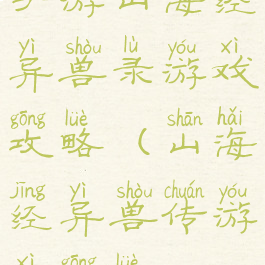 手游山海经
yì shòu lù yóu xì
异兽录游戏
gōng lüè shān hǎi
攻略（山海
jīng yì shòu chuán yóu
经异兽传游
xì gōng lüè